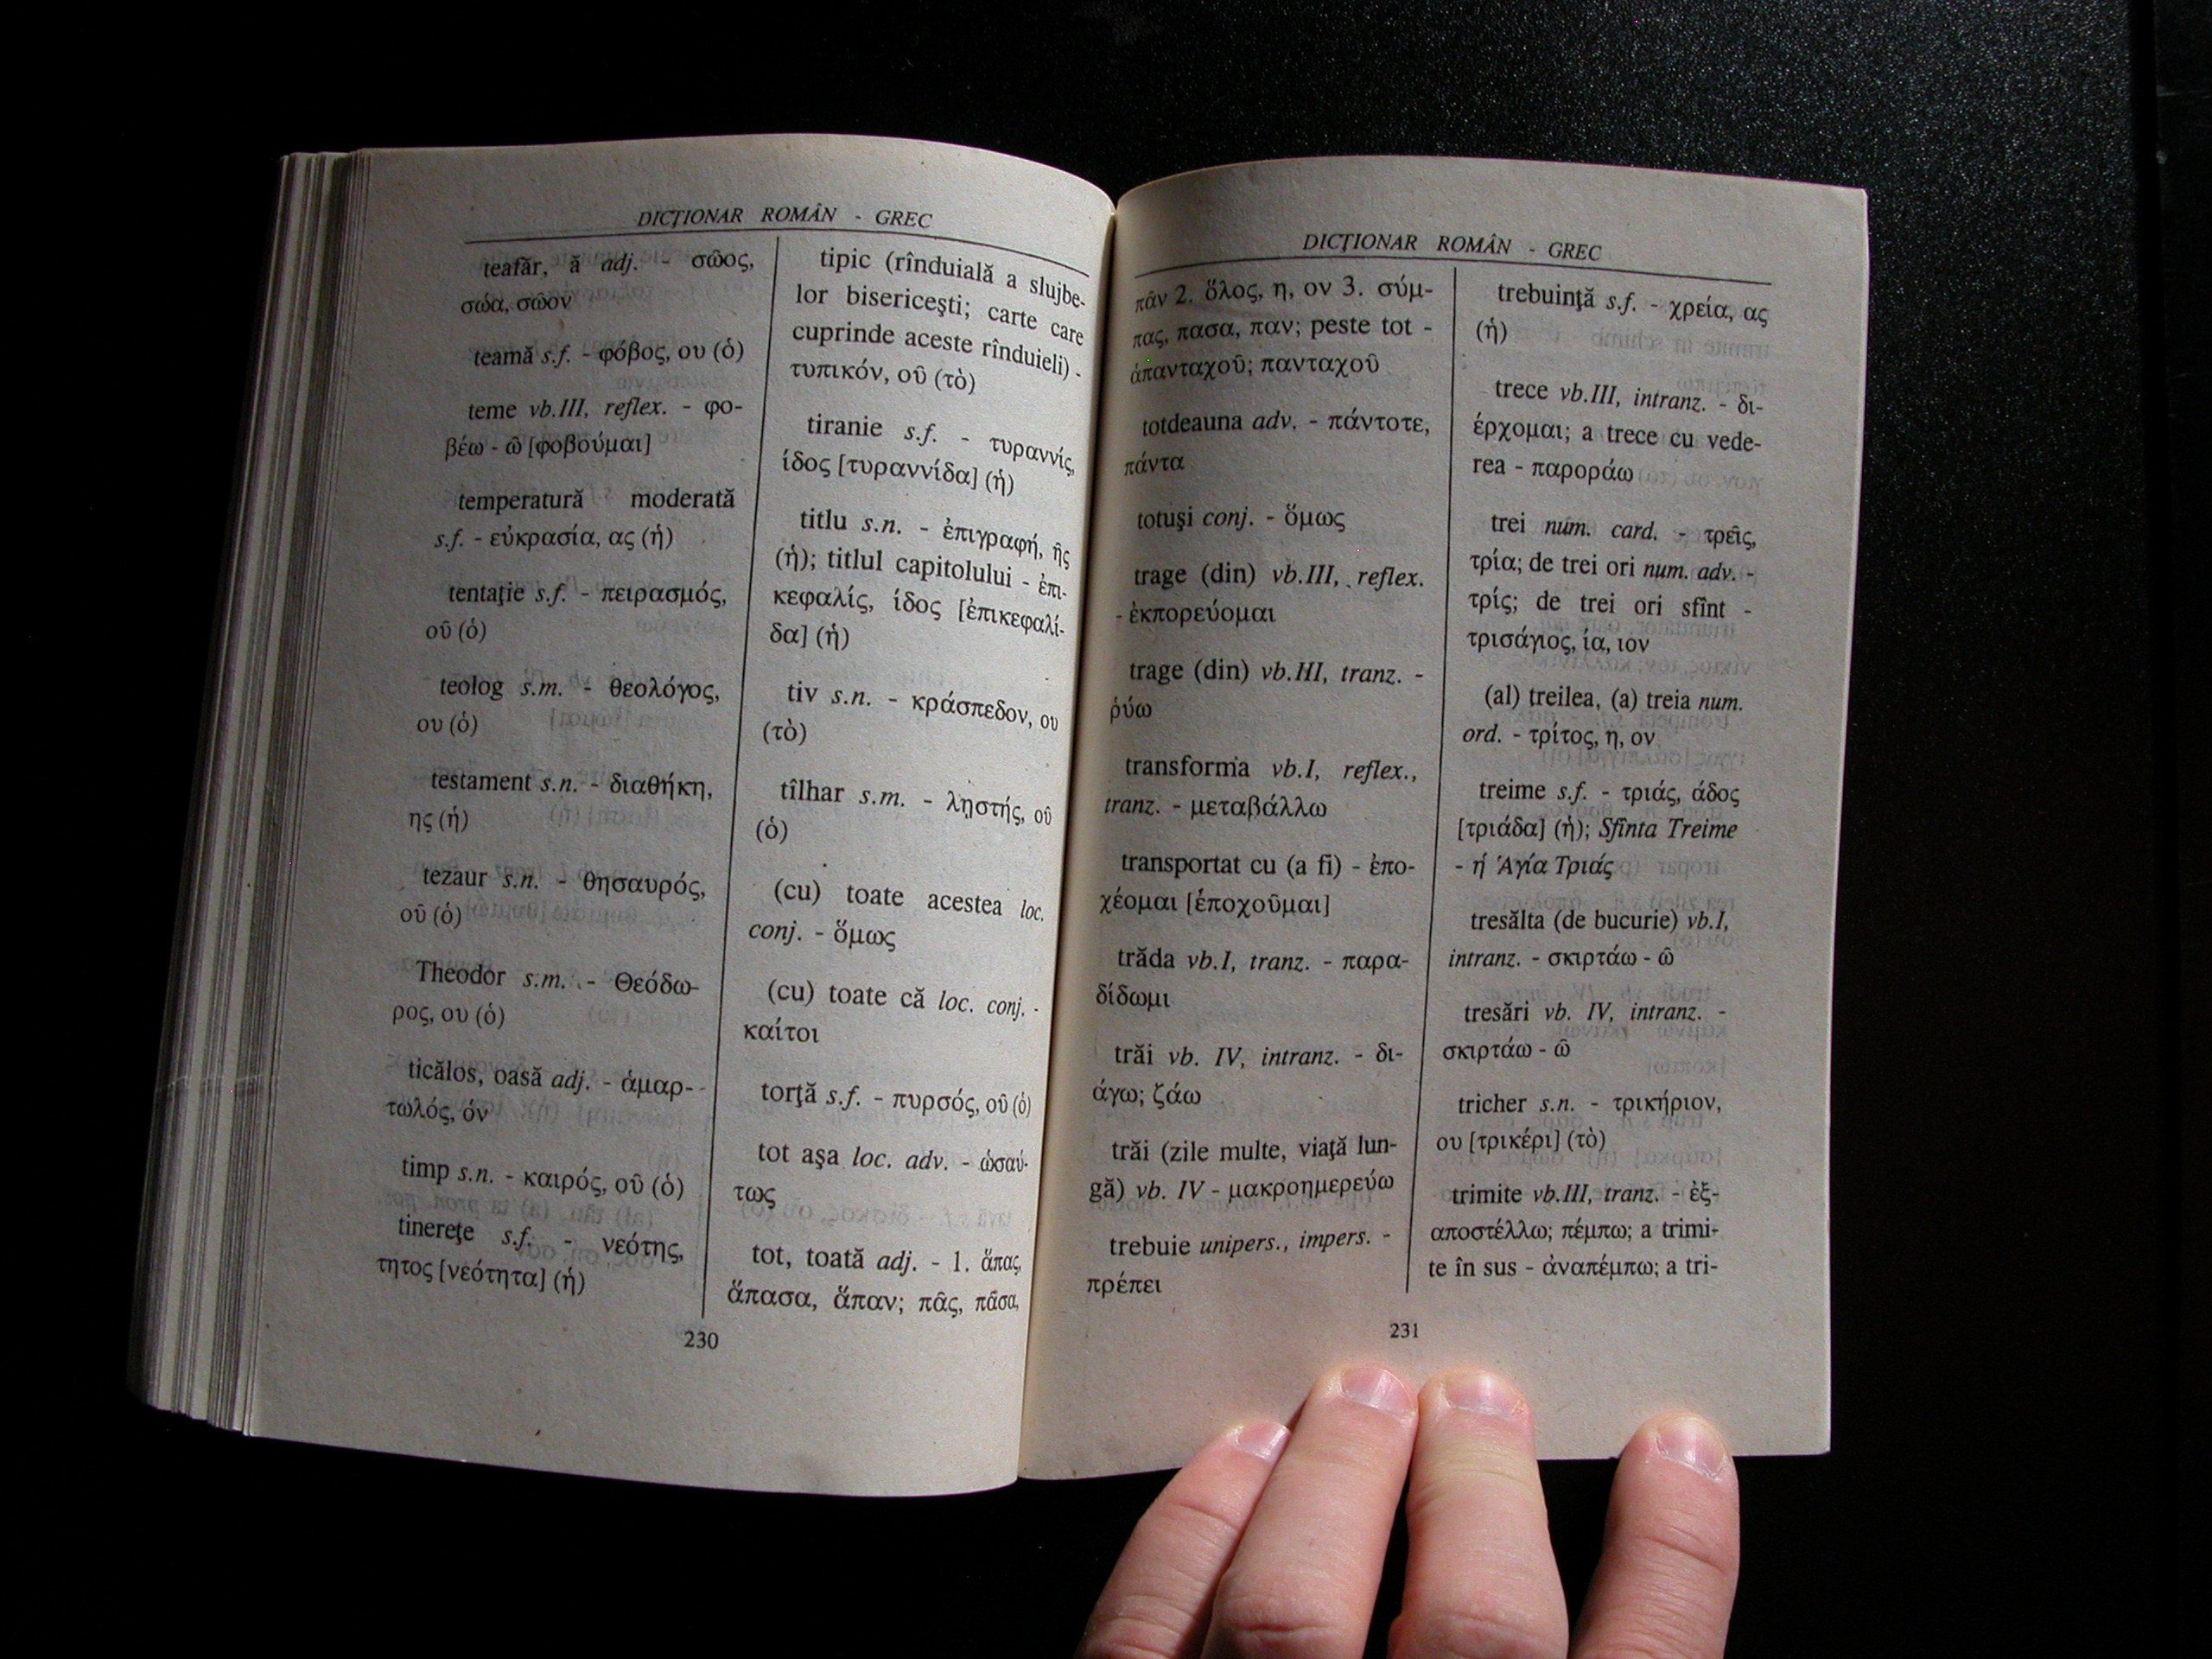 DICŢIONAR ROMÂN - GREC
teafăr, ă adj. - σῶος,
σώα, σῶον
teamă s.f. - φόβος, ου (ὁ)
teme vb.III, reflex. - φο-
βέω - ῶ [φοβούμαι]
temperatură moderată
s.f. - εὐκρασία, ας (ἡ)
tentaţie s.f. - πειρασμός,
οῦ (ὁ)
teolog s.m. - θεολόγος,
ου (ὁ)
testament s.n. - διαθήκη,
ης (ἡ)
tezaur s.n. - θησαυρός,
οῦ (ὁ)
Theodor s.m. - Θεόδω-
ρος, ου (ὁ)
ticălos, oasă adj. - ἁμαρ-
τωλός, όν
timp s.n. - καιρός, οῦ (ὁ)
tinereţe s.f. - νεότης,
τητος [νεότητα] (ἡ)
tipic (rînduială a slujbe-
lor bisericeşti; carte care
cuprinde aceste rînduieli) -
τυπικόν, οῦ (τὸ)
tiranie s.f. - τυραννίς,
ίδος [τυραννίδα] (ἡ)
titlu s.n. - ἐπιγραφή, ῆς
(ἡ); titlul capitolului - ἐπι-
κεφαλίς, ίδος [ἐπικεφαλί-
δα] (ἡ)
tiv s.n. - κράσπεδον, ου
(τὸ)
tîlhar s.m. - λῃστής, οῦ
(ὁ)
(cu) toate acestea loc.
conj. - ὅμως
(cu) toate că loc. conj. -
καίτοι
torţă s.f. - πυρσός, οῦ (ὁ)
tot aşa loc. adv. - ὡσαύ-
τως
tot, toată adj. - 1. ἅπας,
ἅπασα, ἅπαν; πᾶς, πᾶσα,
230
DICŢIONAR ROMÂN - GREC
πᾶν 2. ὅλος, η, ον 3. σύμ-
πας, πασα, παν; peste tot -
ἁπανταχοῦ; πανταχοῦ
totdeauna adv. - πάντοτε,
πάντα
totuşi conj. - ὅμως
trage (din) vb.III, reflex.
- ἐκπορεύομαι
trage (din) vb.III, tranz. -
ῥύω
transforma vb.I, reflex.,
tranz. - μεταβάλλω
transportat cu (a fi) - ἐπο-
χέομαι [ἐποχοῦμαι]
trăda vb.I, tranz. - παρα-
δίδωμι
trăi vb. IV, intranz. - δι-
άγω; ζάω
trăi (zile multe, viaţă lun-
gă) vb. IV - μακροημερεύω
trebuie unipers., impers. -
πρέπει
trebuinţă s.f. - χρεία, ας
(ἡ)
trece vb.III, intranz. - δι-
έρχομαι; a trece cu vede-
rea - παροράω
trei num. card. - τρεῖς,
τρία; de trei ori num. adv. -
τρίς; de trei ori sfînt -
τρισάγιος, ία, ιον
(al) treilea, (a) treia num.
ord. - τρίτος, η, ον
treime s.f. - τριάς, άδος
[τριάδα] (ἡ); Sfînta Treime
- ἡ Ἁγία Τριάς
tresălta (de bucurie) vb.I,
intranz. - σκιρτάω - ῶ
tresări vb. IV, intranz. -
σκιρτάω - ῶ
tricher s.n. - τρικήριον,
ου [τρικέρι] (τὸ)
trimite vb.III, tranz. - ἐξ-
αποστέλλω; πέμπω; a trimi-
te în sus - ἀναπέμπω; a tri-
231